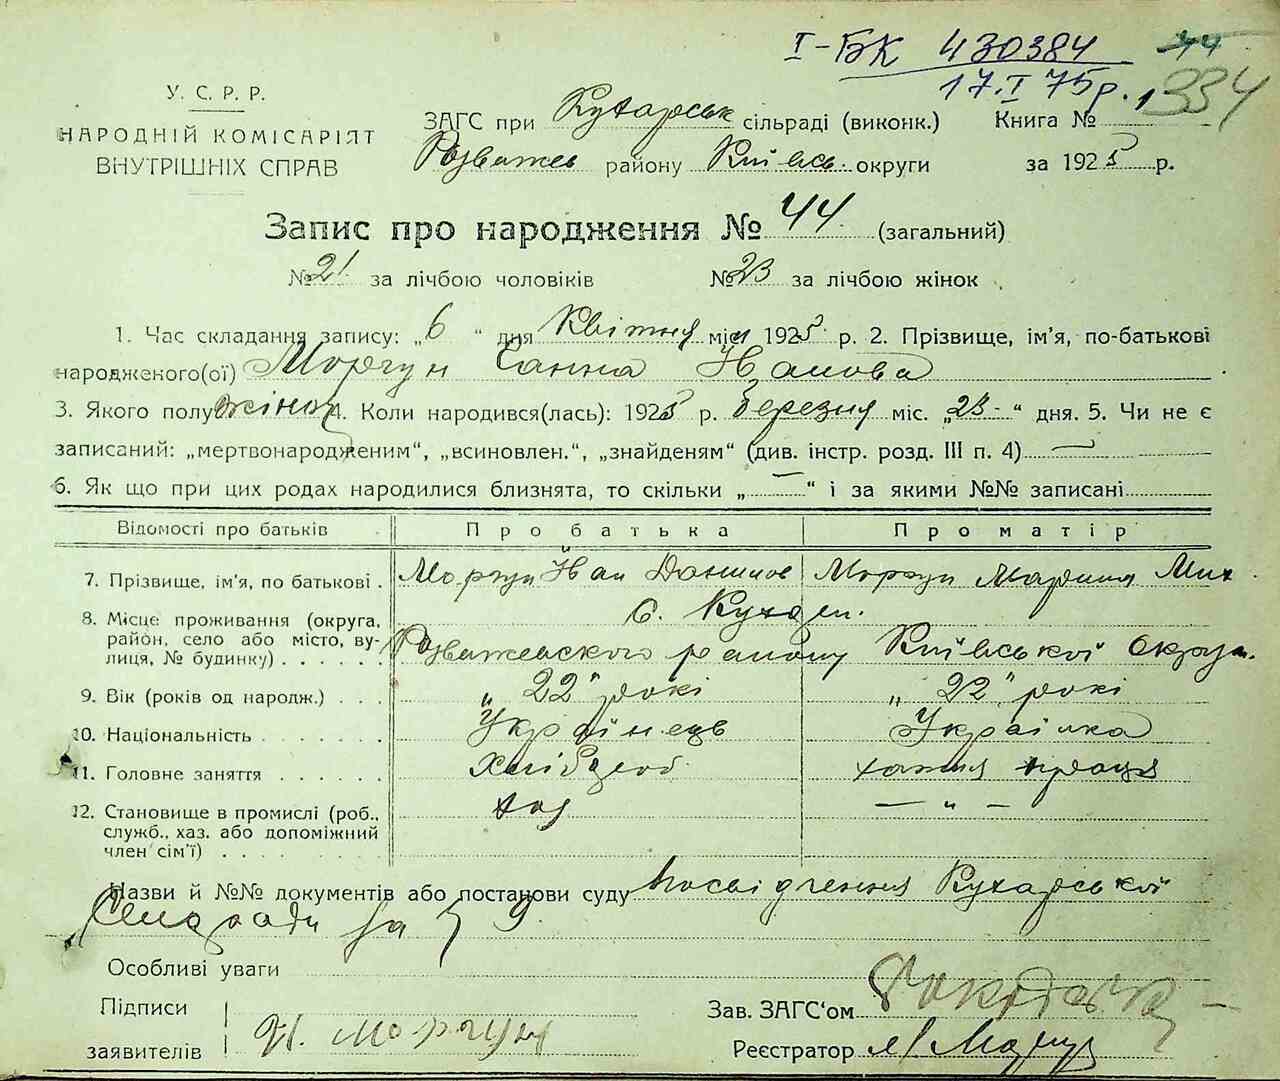 І-БК 430384 44
17.I 75р. 334
У. С. Р. Р.
НАРОДНІЙ КОМІСАРІЯТ
ВНУТРІШНІХ СПРАВ
ЗАГС при Кухарськ сільраді (виконк.) Книга №
Розважев району Київськ. округи за 1925 р.
Запис про народження № 44. (загальний)
№ 21 за лічбою чоловіків № 23 за лічбою жінок
1. Час складання запису: „6“ дня Квітня міс. 1925 р. 2. Прізвище, ім'я, по-батькові
народженого(ої) Моргун Ганна Іванова
3. Якого полу жіноч 4. Коли народився(лась): 1925 р. березня міс. „23“ дня. 5. Чи не є
записаний: „мертвонародженим“, „всиновлен.“, „знайденям“ (див. інстр. розд. III п. 4) —
6. Як що при цих родах народилися близнята, то скільки „—“ і за якими №№ записані
Відомості про батьків Про батька Про матір
7. Прізвище, ім'я, по батькові. Моргун Іван Данилов Моргун Марина Мих
8. Місце проживання (округа, с. Кухари.
район, село або місто, ву-
лиця, № будинку) Розважевского району Київської округи.
9. Вік (років од народж.) „22“ рокі „22“ рокі
10. Національність Українець Українка
11. Головне заняття Хлібороб хатня праця
12. Становище в промислі (роб., хаз — „ —
служб., хаз. або допоміжний
член сім'ї)
Назви й №№ документів або постанови суду посвідчення Кухарської
Сільради за № 9.
Особливі уваги
Підписи
Зав. ЗАГС'ом
заявителів І. Моргун
Реєстратор